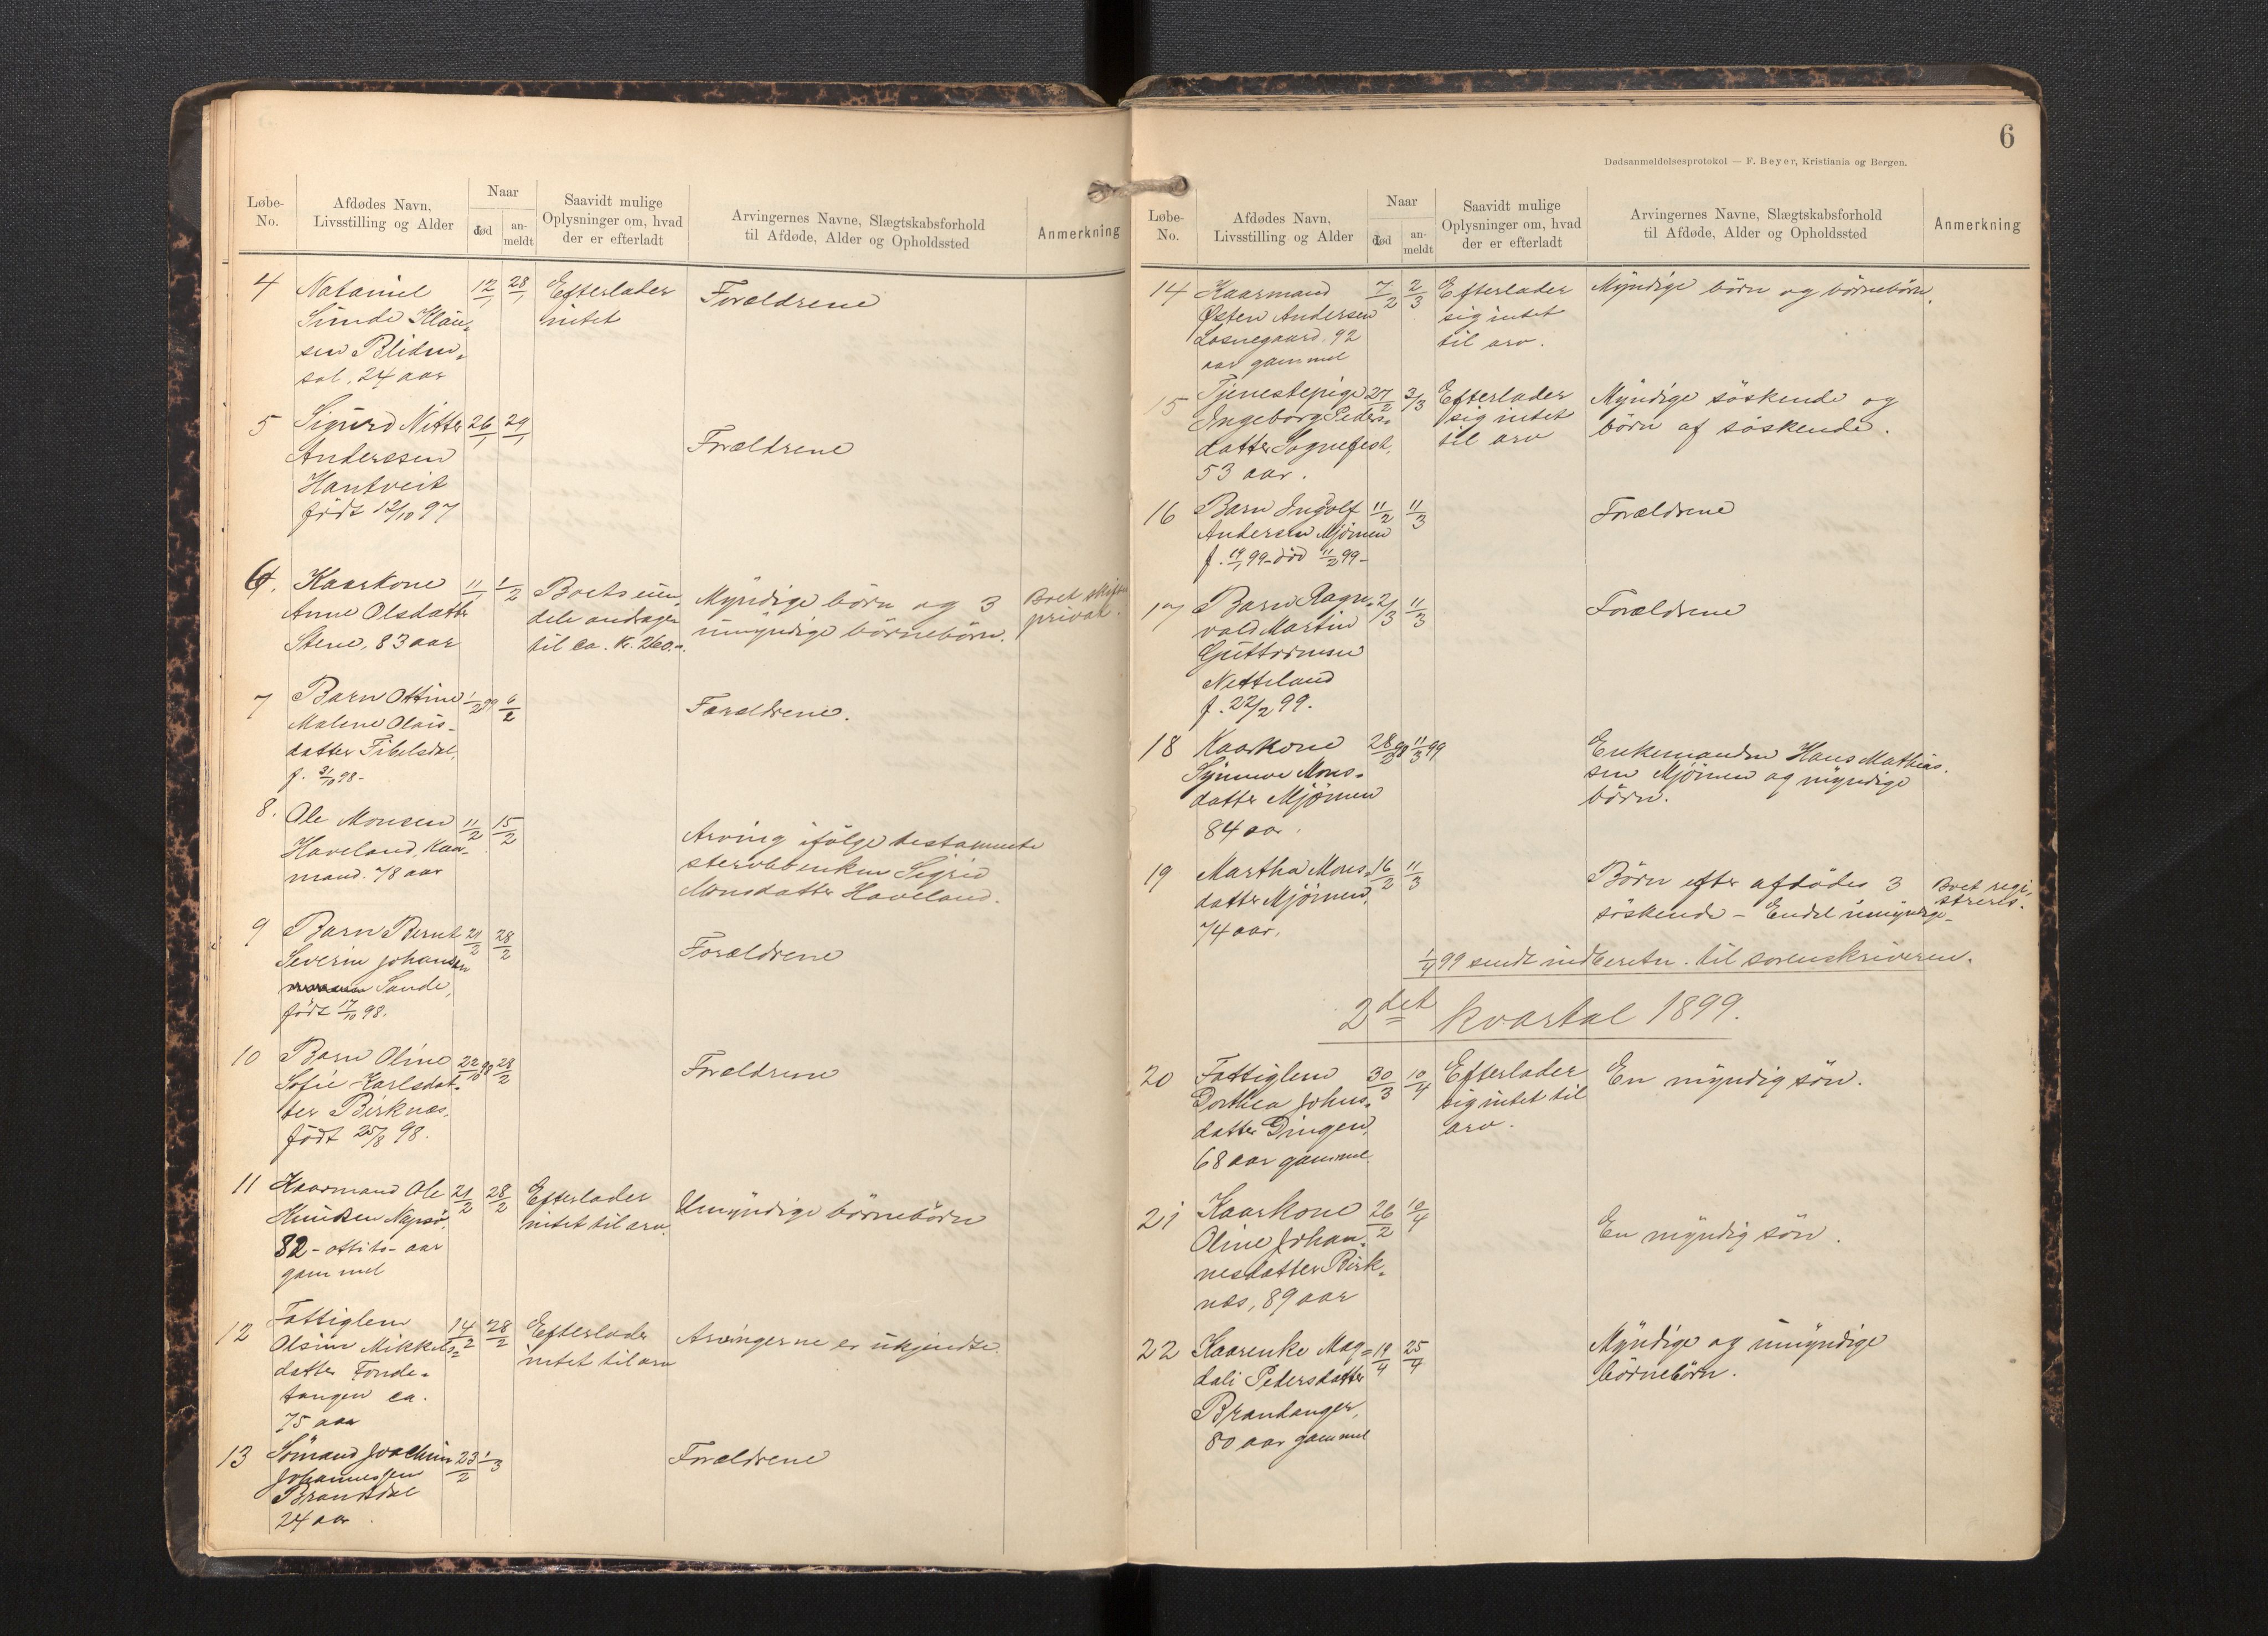 Løbe-
No.
Afdødes Navn,
Livsstilling og Alder
Naar
død
an-
meldt
Saavidt mulige
Oplysninger om, hvad
der er efterladt
Arvingernes Navne, Slægtskabsforhold
til Afdøde, Alder og Opholdssted
Anmerkning
4
Nataniel
Sunde Klau-
sen Blidens-
sol. 24 aar
12/1
28/1
Efterlader
intet
Forældrene
5
Sigurd Nitter
Anderssen
Hantveit
født 12/10 97
26/1
29/1
Forældrene
6.
Kaarkone
Anne Olsdatter
Stene, 83 aar
11/1
1/2
Boets eien-
dele andrager
til ca. kr. 260.-
Myndige børn og 3
umyndige børnebørn.
Boet skiftes
privat.
7
Barn Ottine
Malene Olais-
datter Tibelsdal,
f. 31/10 98-
1/2 99
6/2
Forældrene.
8.
Ole Monsen
Haveland, kaar-
mand. 78 aar
11/2
15/2
Arving ifølge testamente
stervbbenken Sigrid
Monsdatter Haveland.
9
Barn Bernt
Severin Johansen
Sande,
født 17/10 98.
21/2
28/2
Forældrene
10
Barn Oline
Sofie Karlsdat-
ter Birknes,
født 25/8 98.
22/10 98
28/2
Forældrene
11
Kaarmand Ole
Knudsen Napsø,
82-ottito-aar
gammel
21/2
28/2
Efterlader
intet til arv.
Umyndige børnebørn
12
Fattiglem
Olsine Mikkels-
datter Tonde-
tangen ca.
75 aar
14/2
28/2
Efterlader
intet til arv
Arvingerne er ukjendte.
13
Sømand Joachim
Johannessen
Brandsdal
24 aar.
23/2
1/3
Forældrene
6
Dødsanmeldelsesprotokol — F. Beyer, Kristiania og Bergen.
Løbe-
No.
Afdødes Navn,
Livsstilling og Alder
Naar
død
an-
meldt
Saavidt mulige
Oplysninger om, hvad
der er efterladt
Arvingernes Navne, Slægtskabsforhold
til Afdøde, Alder og Opholdssted
Anmerkning
14
Kaarmand
Østen Andersen
Losnegaard, 92
aar gammel
7/2
2/3
Efterlader
sig intet
til arv.
Myndige børn og børnebørn.
15
Tjenestepige
Ingeborg Peders-
datter Sognefest,
53 aar.
27/2
3/3
Efterlader
sig intet
til arv
Myndige søskende og
børn af søskende.
16
Barn Ingolf
Andersen Mjømen
f. 19/1 99- død 11/2 99-
11/2
11/3
Forældrene
17
Barn Ragn-
vald Martin
Guttormsen
Netteland
f. 22/2 99.
2/3
11/3
Forældrene
18
Kaarkone
Synneve Mons-
datter Mjømen
84 aar.
28/2 98
11/3 99
Enkemanden Hans Mathias-
sen Mjømen og myndige
børn.
19
Martha Mons-
datter Mjømen,
74 aar.
16/2
11/3
Børn efter afdødes 3
søskende - Endel umyndige-
Boet regi-
streres.
1/4 99 sendt indberetn. til sorenskriveren.
2det kvartal 1899.
20
Fattiglem
Dorthea Johns-
datter Dingen,
68 aar gammel.
30/3
10/4
Efterlader
sig intet til
arv.
En myndig søn.
21
Kaarkone
Oline Johan-
nesdatter Birk-
nes, 89 aar
26/2
12/4
En myndig søn.
22
Kaarenke Mag-
dali Pedersdatter
Brandanger,
80 aar gammel
19/4
25/4
Myndige og umyndige
børnebørn.